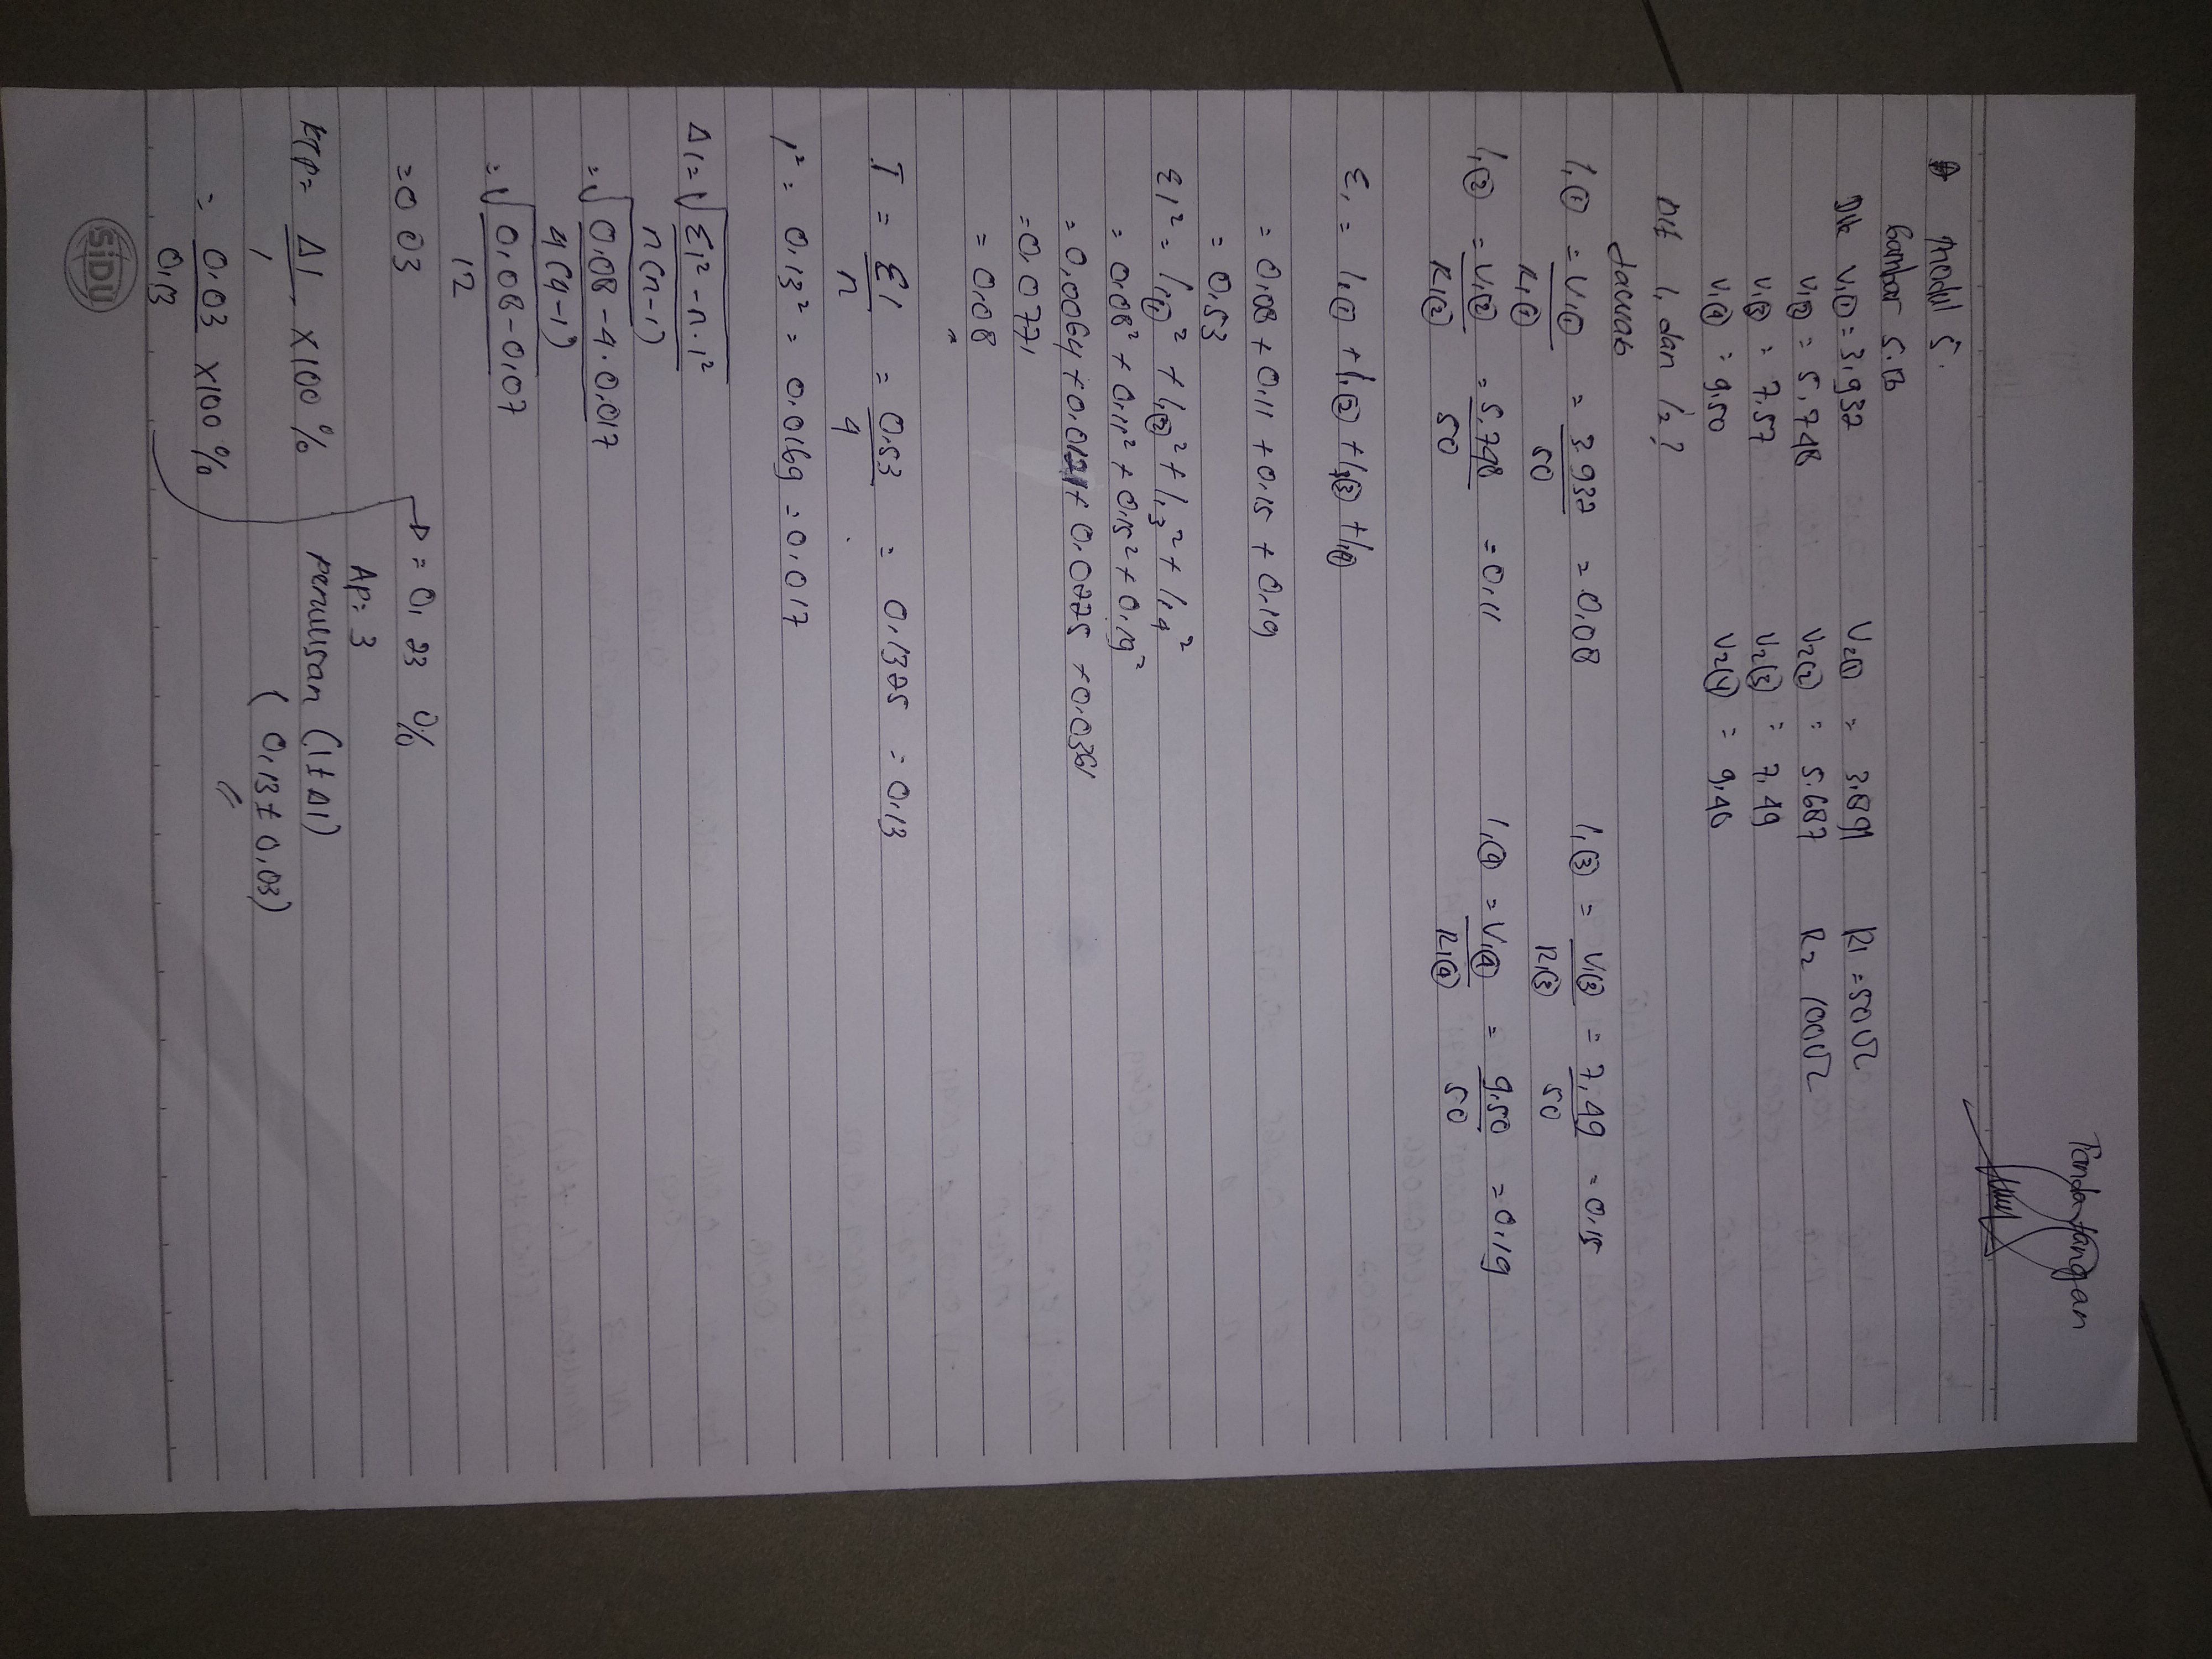 Tandatangan
Modul 5.
Gambar 5.13
Dik V1① = 3.932 V2① = 3.891 R1 = 50Ω
V1② = 5.748 V2② = 5.687 R2 100Ω
V1③ = 7.57 V2③ = 7,49
V1④ = 9,50 V2(4) = 9,46
Dit I1 dan I2?
Jawab
I1① = V1① = 3.932 = 0.08 I1③ = V1③ = 7,49 = 0.15
R1① 50 R1③ 50
I1② = V1② = 5.748 = 0.11 I1④ = V1④ = 9.50 = 0.19
R1② 50 R1④ 50
Σ1 = I1① + I1② + I1③ + I1④
= 0.08 + 0.11 + 0.15 + 0.19
= 0.53
ΣI² = I1①² + I1②² + I1 3² + I1 4²
= 0.08² + 0.11² + 0.15² + 0.19²
= 0.0064 + 0.0121 + 0.0225 + 0.0361
= 0.0771
= 0.08
I = ΣI = 0.53 = 0.1325 = 0.13
n 4
I² = 0.13² = 0.0169 = 0.017
ΔI = √ΣI² - n. I²
n(n-1)
= √0.08 - 4. 0.017
4(4-1)
= √0.08 - 0.07
12
= 0 03
KTP = ΔI × 100 %
I
= 0.03 × 100 %
0.13
= 0,23 %
AP = 3
Penulisan (I ± ΔI)
(0,13 ± 0,03)
SiDU